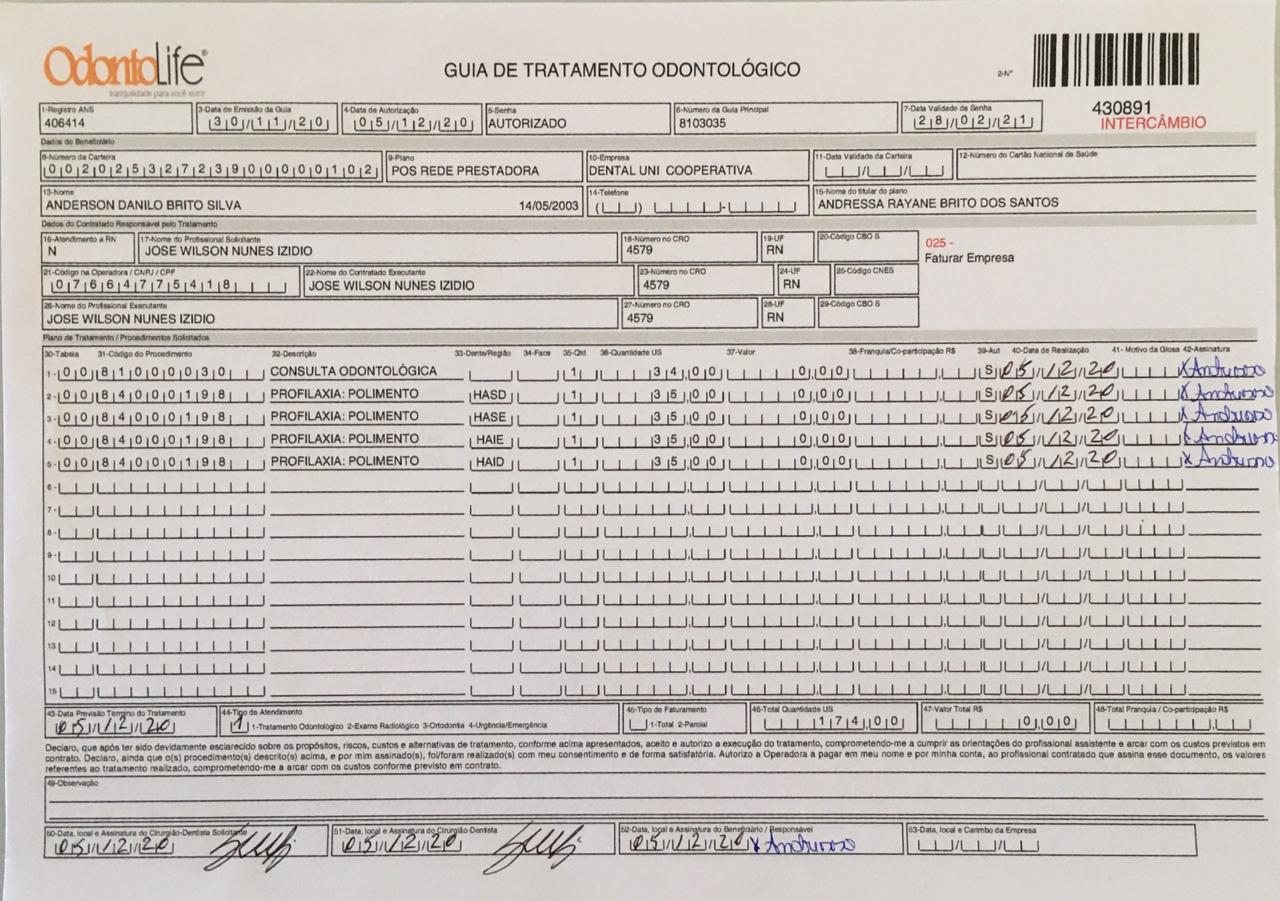 OdontoLife®
tranquilidade para você sorrir
GUIA DE TRATAMENTO ODONTOLÓGICO
2-Nº
430891
INTERCÂMBIO
1-Registro ANS 3-Data de Emissão da Guia 4-Data de Autorização 5-Senha 6-Número da Guia Principal 7-Data Validade da Senha
406414 30/11/20 05/12/20 AUTORIZADO 8103035 28/02/21
Dados do Beneficiário
8-Número da Carteira 9-Plano 10-Empresa 11-Data Validade da Carteira 12-Número do Cartão Nacional de Saúde
00202532723900000102 POS REDE PRESTADORA DENTAL UNI COOPERATIVA
13-Nome 14-Telefone 15-Nome do titular do plano
ANDERSON DANILO BRITO SILVA 14/05/2003 ANDRESSA RAYANE BRITO DOS SANTOS
Dados do Contratado Responsável pelo Tratamento
16-Atendimento a RN 17-Nome do Profissional Solicitante 18-Número no CRO 19-UF 20-Código CBO S
N JOSE WILSON NUNES IZIDIO 4579 RN
025 -
Faturar Empresa
21-Código na Operadora / CNPJ / CPF 22-Nome do Contratado Executante 23-Número no CRO 24-UF 25-Código CNES
07664775418 JOSE WILSON NUNES IZIDIO 4579 RN
26-Nome do Profissional Executante 27-Número no CRO 28-UF 29-Código CBO S
JOSE WILSON NUNES IZIDIO 4579 RN
Plano de Tratamento / Procedimentos Solicitados
30-Tabela 31-Código do Procedimento 32-Descrição 33-Dente/Região 34-Face 35-Qtd 36-Quantidade US 37-Valor 38-Franquia/Co-participação R$ 39-Aut 40-Data de Realização 41- Motivo da Glosa 42-Assinatura
1- 00 81000030 CONSULTA ODONTOLÓGICA 1 34,00 0,00 S 05/12/20
2- 00 84000198 PROFILAXIA: POLIMENTO HASD 1 35,00 0,00 S 05/12/20
3- 00 84000198 PROFILAXIA: POLIMENTO HASE 1 35,00 0,00 S 05/12/20
4- 00 84000198 PROFILAXIA: POLIMENTO HAIE 1 35,00 0,00 S 05/12/20
5- 00 84000198 PROFILAXIA: POLIMENTO HAID 1 35,00 0,00 S 05/12/20
6-
7-
8-
9-
10
11
12
13
14
15
43-Data Previsão Término do Tratamento 44-Tipo de Atendimento 45-Tipo de Faturamento 46-Total Quantidade US 47-Valor Total R$ 48-Total Franquia / Co-participação R$
05/12/20 1 1-Tratamento Odontológico 2-Exame Radiológico 3-Ortodontia 4-Urgência/Emergência 1-Total 2-Parcial 174,00 0,00
Declaro, que após ter sido devidamente esclarecido sobre os propósitos, riscos, custos e alternativas de tratamento, conforme acima apresentados, aceito e autorizo a execução do tratamento, comprometendo-me a cumprir as orientações do profissional assistente e arcar com os custos previstos em
contrato. Declaro, ainda que o(s) procedimento(s) descrito(s) acima, e por mim assinado(s), foi/foram realizado(s) com meu consentimento e de forma satisfatória. Autorizo a Operadora a pagar em meu nome e por minha conta, ao profissional contratado que assina esse documento, os valores
referentes ao tratamento realizado, comprometendo-me a arcar com os custos conforme previsto em contrato.
49-Observação
50-Data, local e Assinatura do Cirurgião-Dentista Solicitante 51-Data, local e Assinatura do Cirurgião-Dentista 52-Data, local e Assinatura do Beneficiário / Responsável 53-Data, local e Carimbo da Empresa
05/12/20 05/12/20 05/12/20